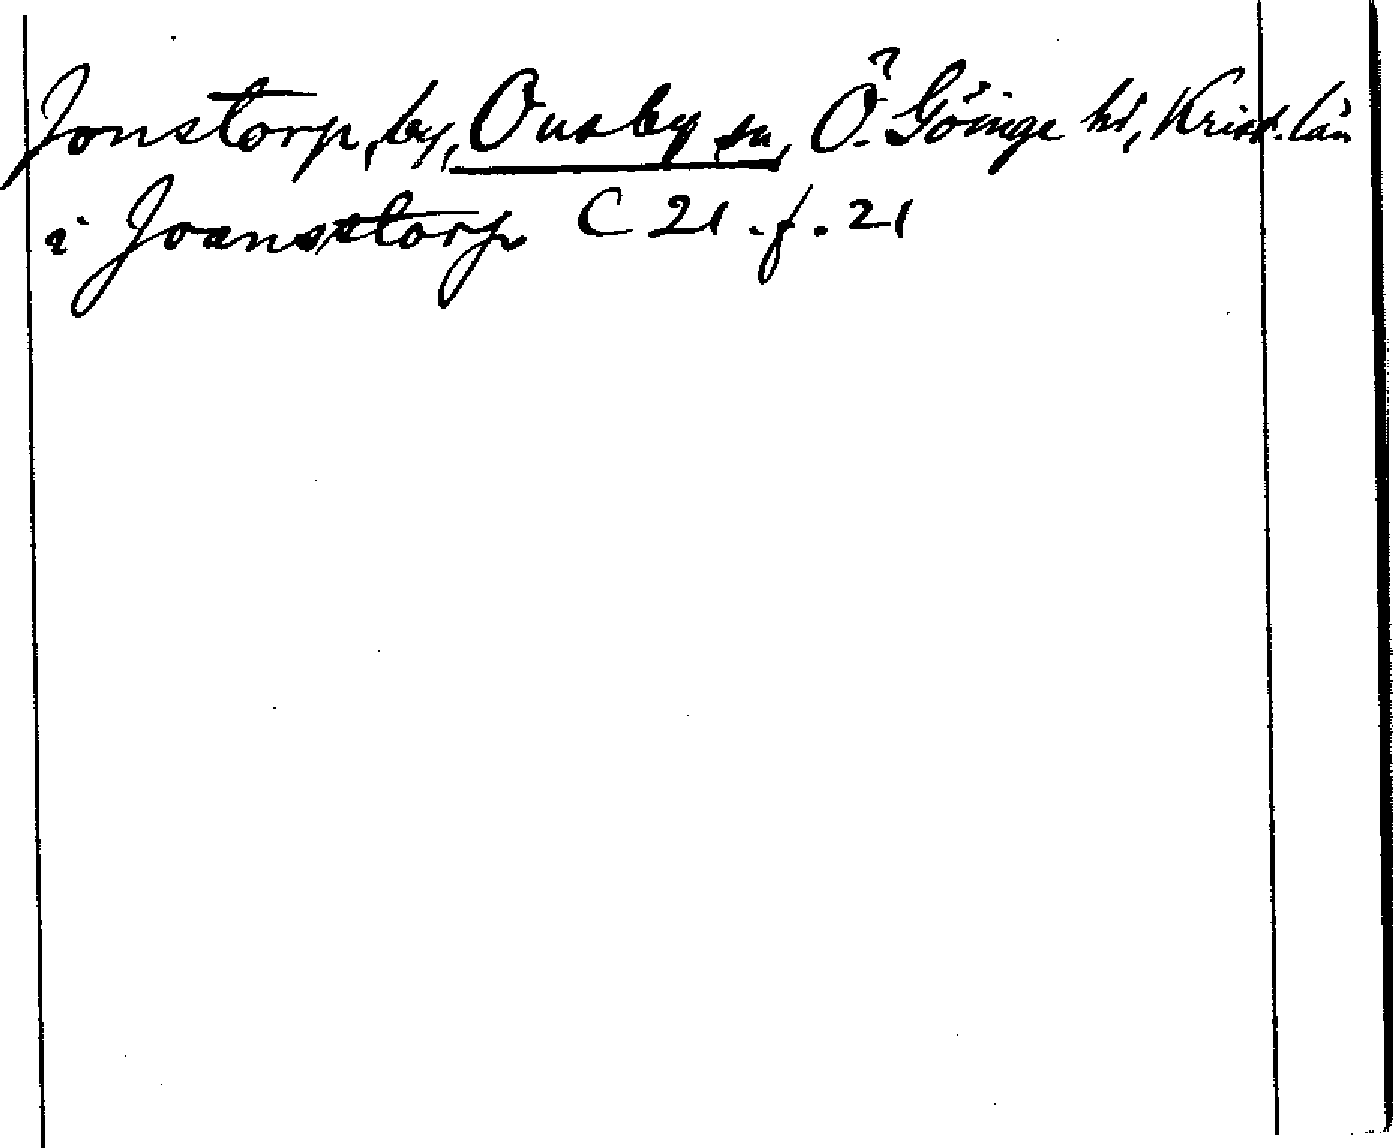 Jonstorp, by, Ousby sn, Ö. Göinge hd, Krist. län
i Joansstorp C 21. f. 21